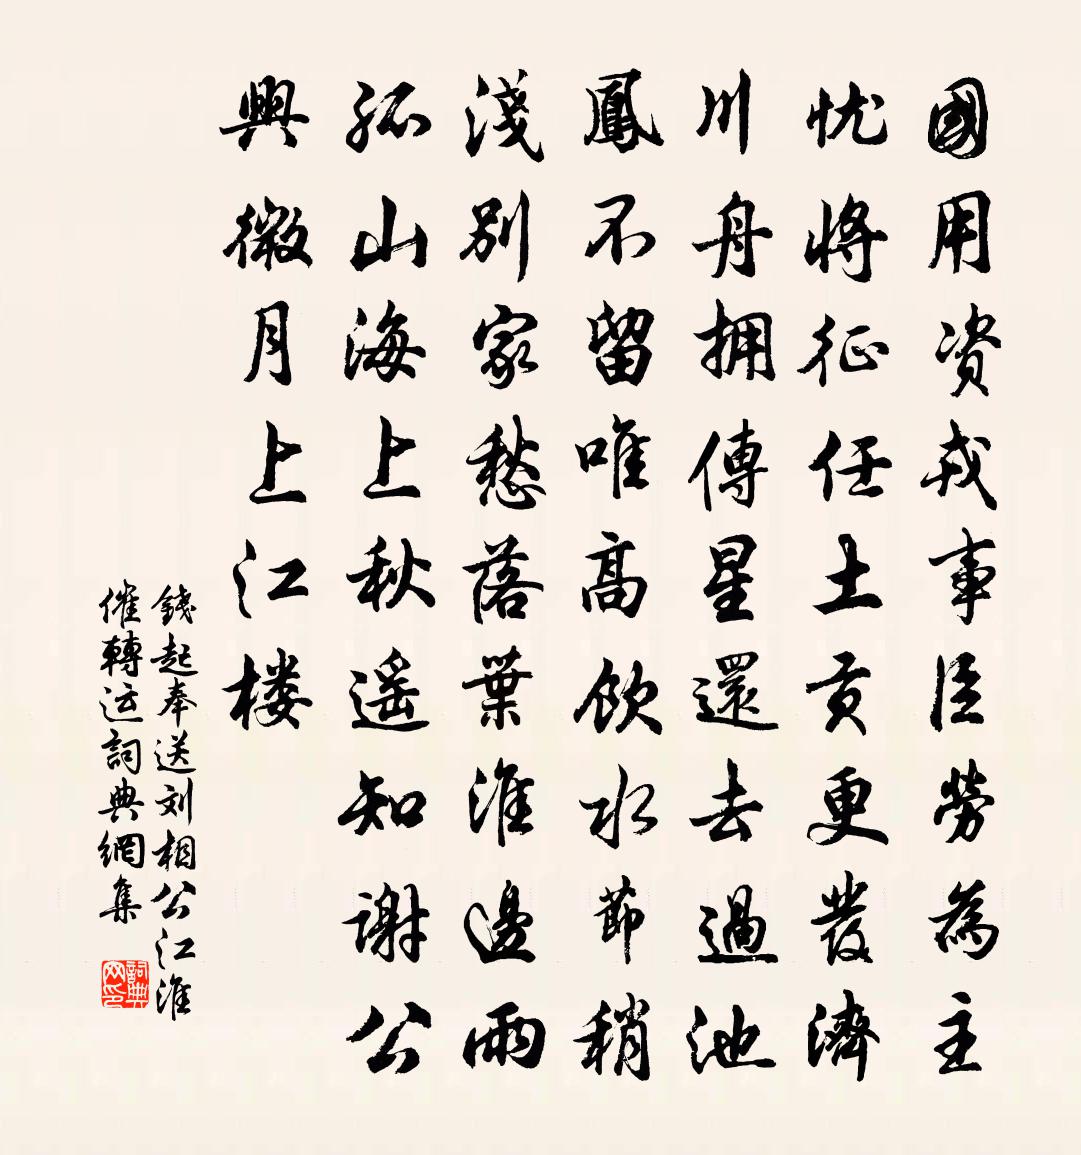 國用資戎事臣勞為主
忧將征任土貢更發濟
川舟拥傳星還去過池
鳳不留唯高飲水節稍
淺別家愁落葉淮邊雨
孤山海上秋遥知谢公
興微月上江楼
錢起奉送刘相公江淮
催轉运詞典網集
詞典网印